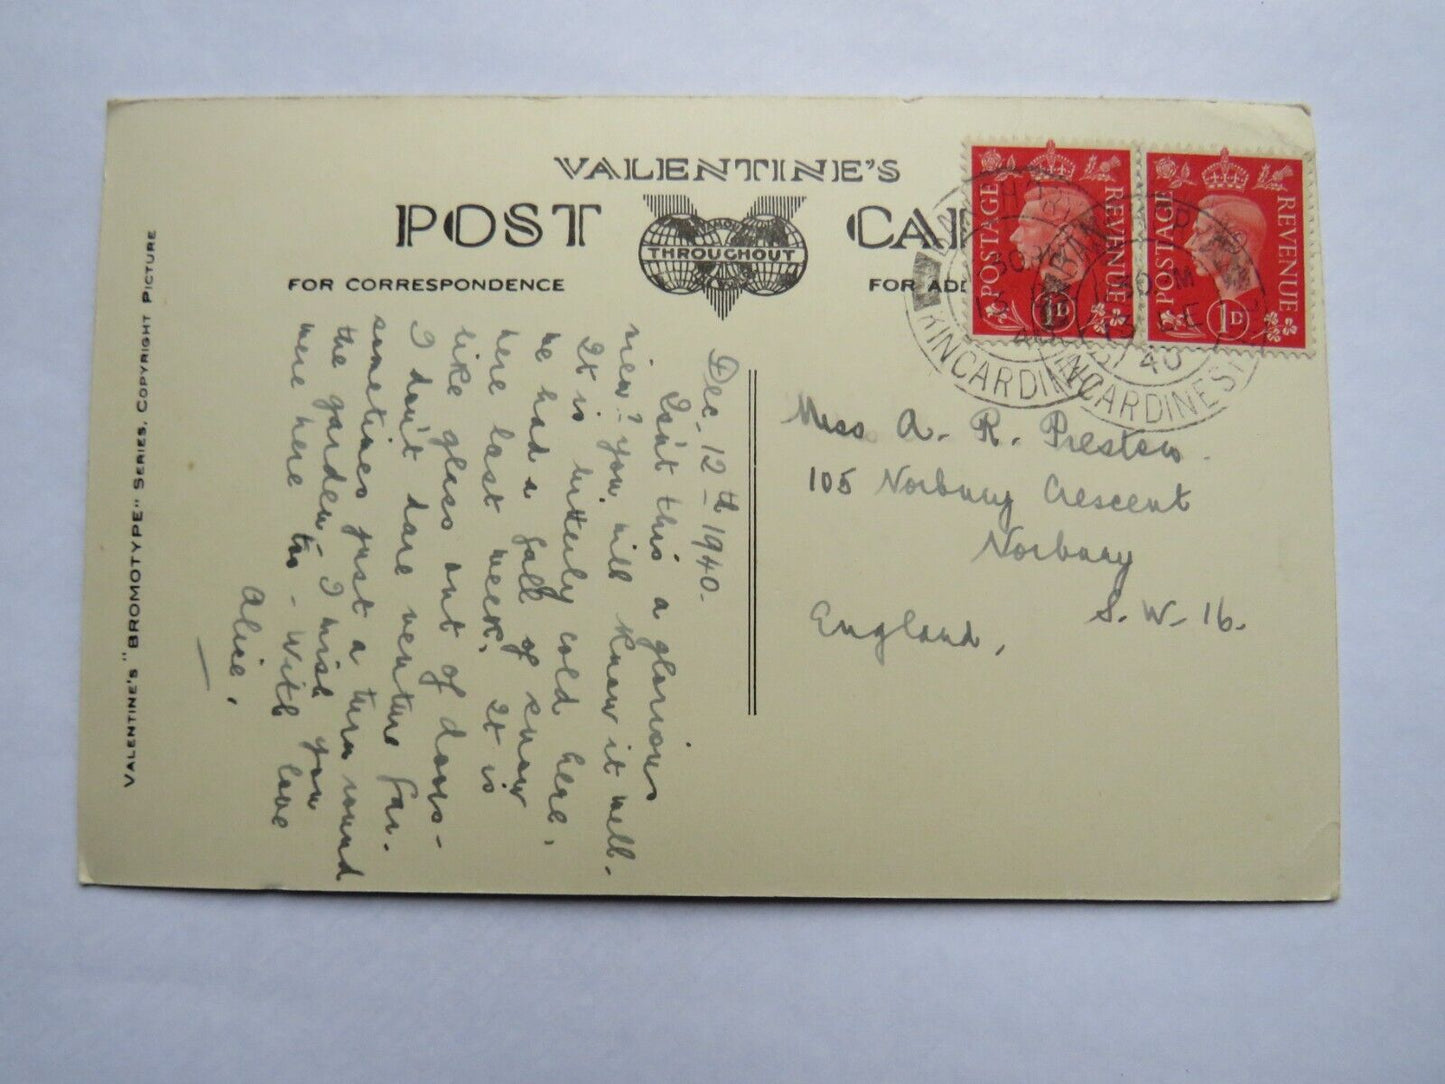 VALENTINE'S
POST CAR
FAMOUS
THROUGHOUT
FOR CORRESPONDENCE
FOR ADD
VALENTINE'S "BROMOTYPE" SERIES. COPYRIGHT PICTURE
Dec. 12th 1940.
Isn't this a glorious
view? You will know it well.
It is bitterly cold here,
we had a fall of snow
here last week. It is
like glass out of doors-
I don't dare venture far.
sometimes just a turn round
the garden - I wish you
were here too - With love
Alice,
Miss A. R. Preston.
105 Norbury Crescent
Norbury
S. W. 16.
England,
POSTAGE REVENUE
1D
POSTAGE REVENUE
1D
30 PM
KINCARDINE
30 PM
13 DE
40
KINCARDINESH